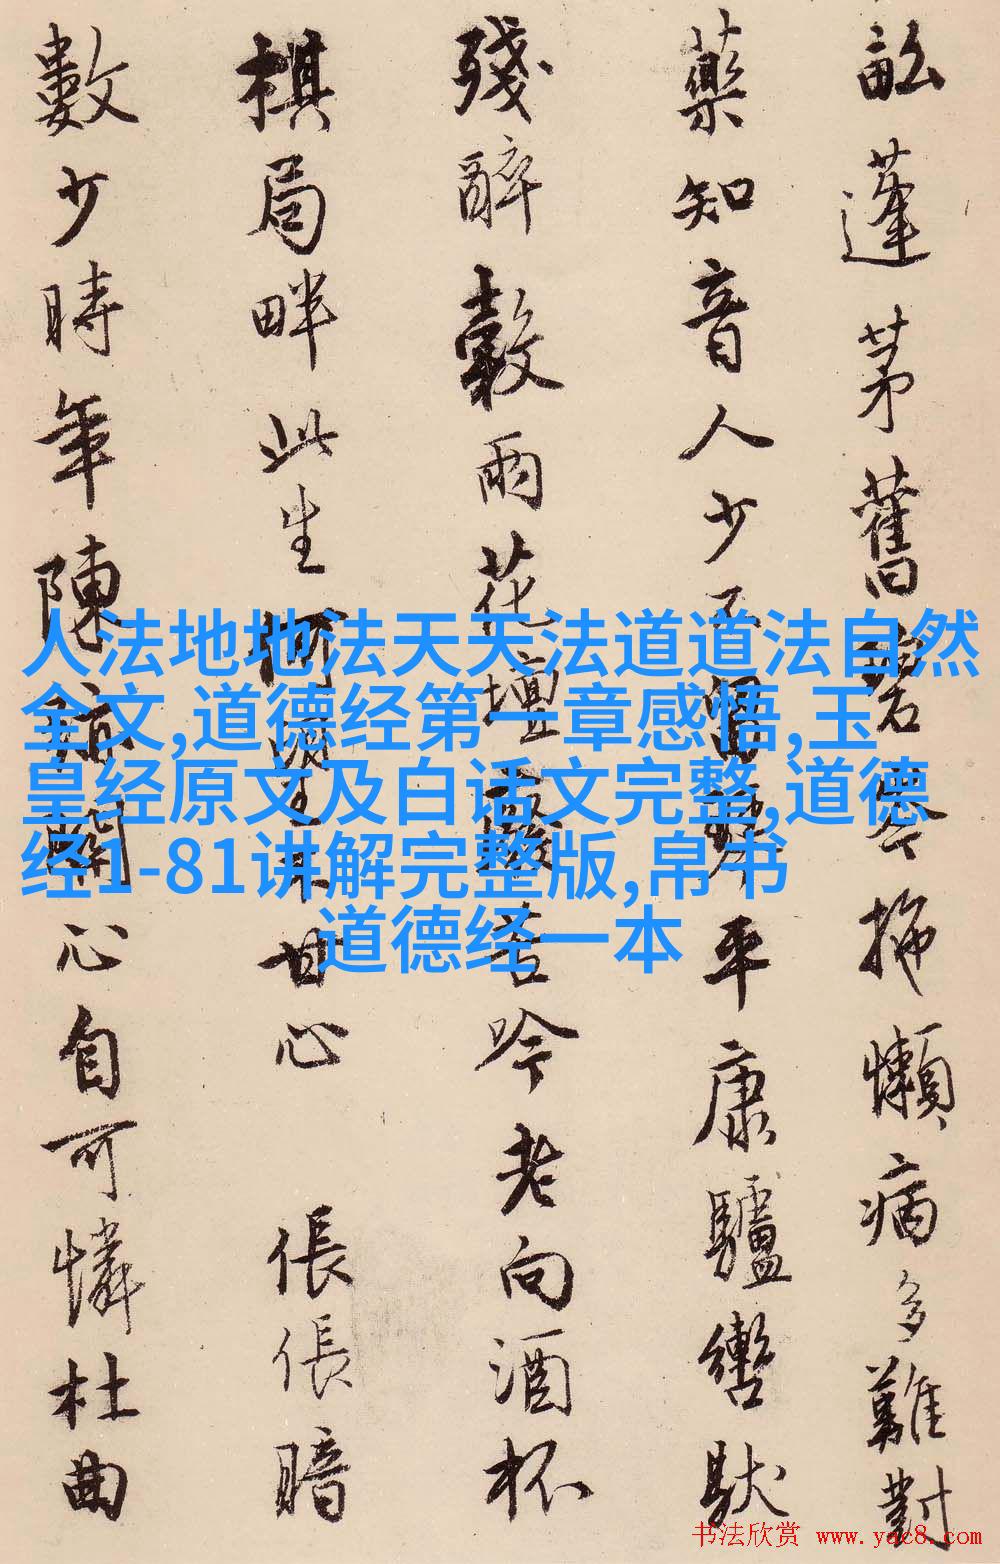 畝蓬茅舊
拖懶病多難對
藥知音人少
平康驢轡馱
殘醉數雨花壇
苦吟今老向酒杯
棋局畔此生
甘心 倀倀暗
數少時年陳
心自可憐杜曲
人法地地法天天法道道法自然
全文,道德经第一章感悟,玉
皇经原文及白话文完整,道德
经1-81讲解完整版,帛书
道德经一本
书法欣赏 www.yac8.com